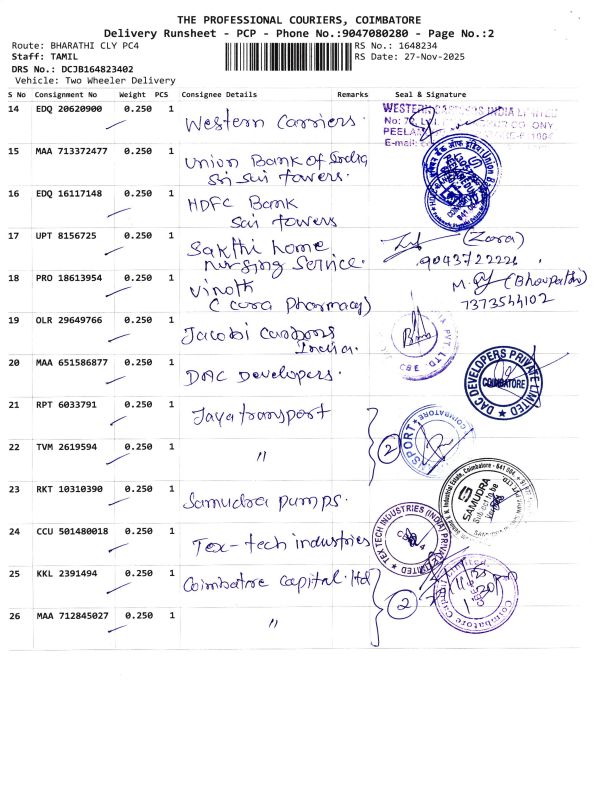 THE PROFESSIONAL COURIERS, COIMBATORE
Delivery Runsheet - PCP - Phone No.:9047080280 - Page No.:2
Route: BHARATHI CLY PC4
RS No.: 1648234
Staff: TAMIL
RS Date: 27-Nov-2025
DRS No.: DCJB164823402
Vehicle: Two Wheeler Delivery
S No Consignment No Weight PCS Consignee Details Remarks Seal & Signature
14 EDQ 20620900 0.250 1 Western Carriers.
WESTERN CARRIERS INDIA LIMITED
No: 7
PEELAM
E-mail:
15 MAA 713372477 0.250 1 Union Bank of India
Sri Sai towers.
16 EDQ 16117148 0.250 1 HDFC Bank
Sai towers
17 UPT 8156725 0.250 1 Sakthi home
nursing Service.
(Zara)
9043722226
18 PRO 18613954 0.250 1 Vinoth
(Cura Pharmacy)
M. (Bhoopathi)
7373544102
19 OLR 29649766 0.250 1 Jacobi Carbons
India.
PVT. LTD
CBE
20 MAA 651586877 0.250 1 DAC Developers.
DAC DEVELOPERS PRIVATE LIMITED
COIMBATORE
21 RPT 6033791 0.250 1 Jayatransport
COIMBATORE
22 TVM 2619594 0.250 1 "
2
23 RKT 10310390 0.250 1 Samudra pumps.
SAMUDRA
Subject to be
24 CCU 501480018 0.250 1 Tex-tech industries
TEX TECH INDUSTRIES (INDIA) PRIVATE LIMITED
25 KKL 2391494 0.250 1 Coimbatore Capital. ltd
Coimbatore Capital Limited
26 MAA 712845027 0.250 1 "
2